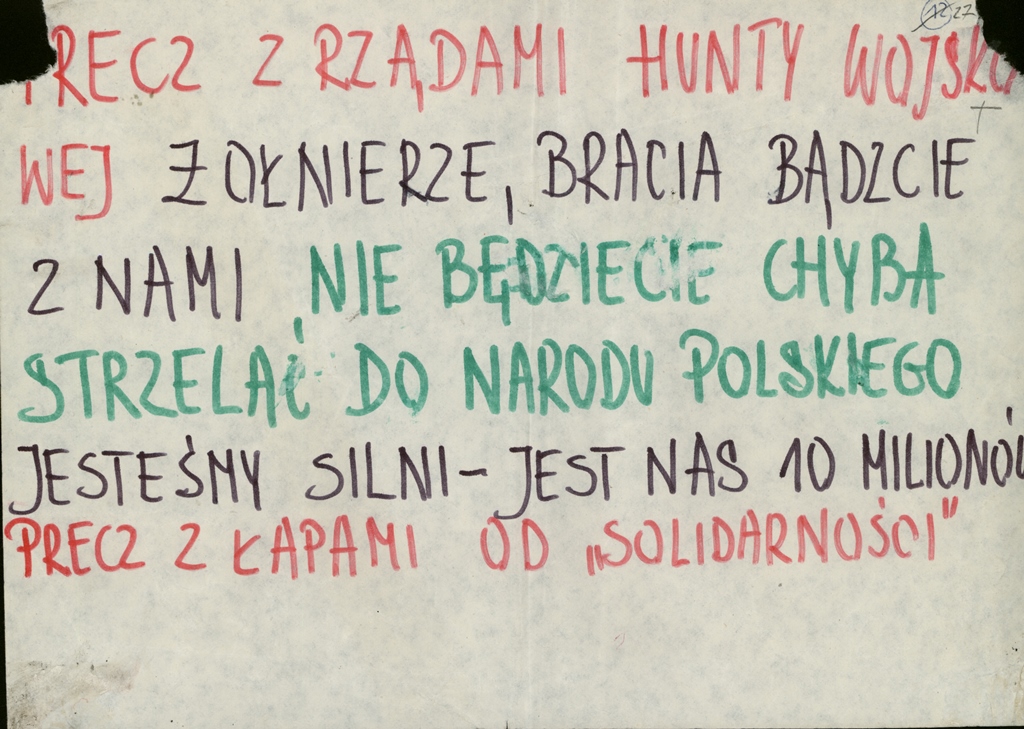 12 27
PRECZ Z RZĄDAMI HUNTY WOJSKO
WEJ ŻOŁNIERZE, BRACIA BĄDZCIE
Z NAMI, NIE BĘDZIECIE CHYBA
STRZELAĆ DO NARODU POLSKIEGO
JESTEŚMY SILNI – JEST NAS 10 MILIONÓW
PRECZ Z ŁAPAMI OD „SOLIDARNOŚCI”